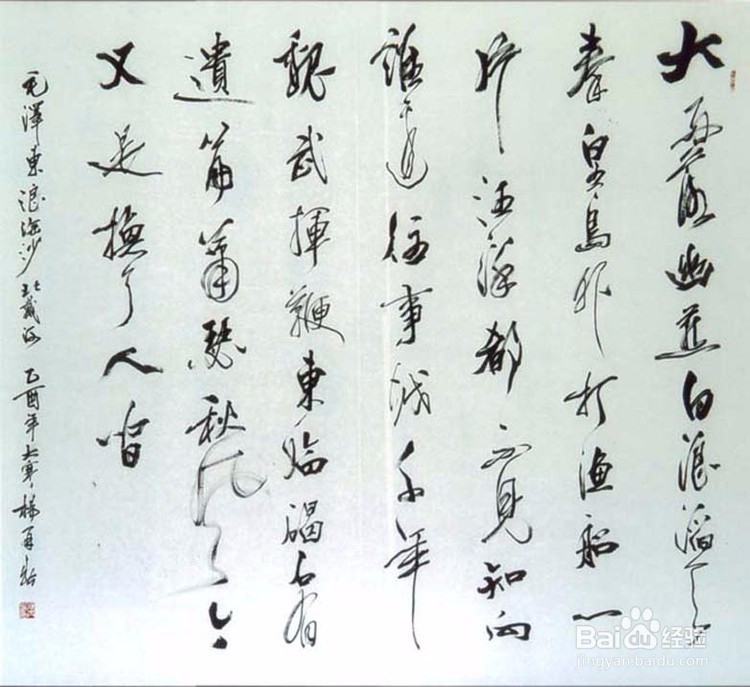 大雨落幽燕白浪滔天
秦皇島外打漁船一
片汪洋都不見知向
誰邊往事越千年
魏武揮鞭東臨碣石有
遺篇蕭瑟秋風今
又是換了人間
毛澤東浪淘沙北戴河 乙酉年大寒 楊
Baidu 经验
jingyan.baidu.com